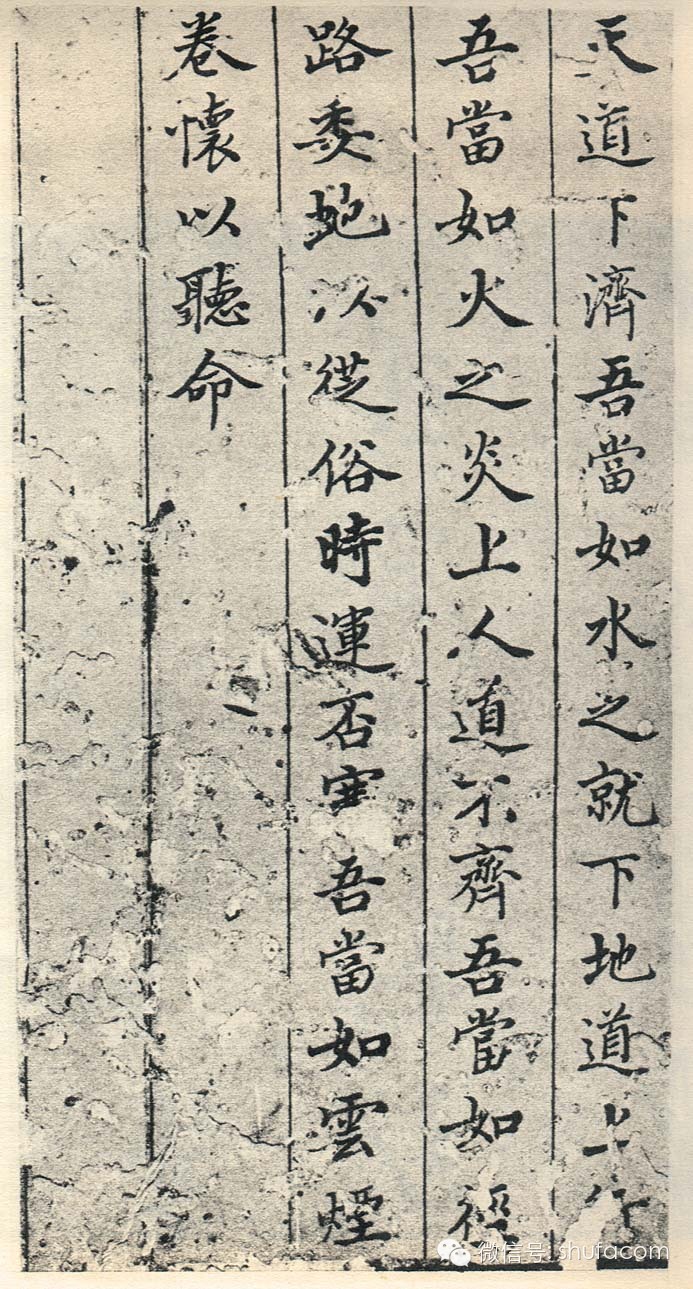 天道下濟吾當如水之就下地道上行
吾當如火之炎上人道不齊吾當如徑
路委虵以從俗時運否塞吾當如雲煙
卷懷以聽命
微信号: shufacom